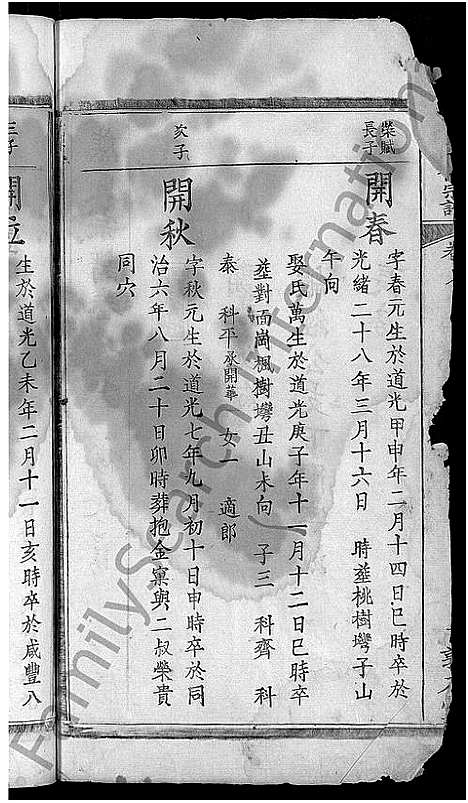 榮賦
長子
開春
字春元生於道光甲申年二月十四日巳時卒於
光緒二十八年三月十六日 時塟桃樹塆子山
午向
娶氏萬生於道光庚子年十一月十二日巳時卒
塟對面崗楓樹塆丑山未向 子三 科齊 科
泰 科平承開華 女一 適郎
次子
開秋
字秋元生於道光七年九月初十日申時卒於同
治六年八月二十日卯時葬抱金窠與二叔榮貴
同穴
三子
開
生於道光乙未年二月十一日亥時卒於咸豐八
FamilySearch International